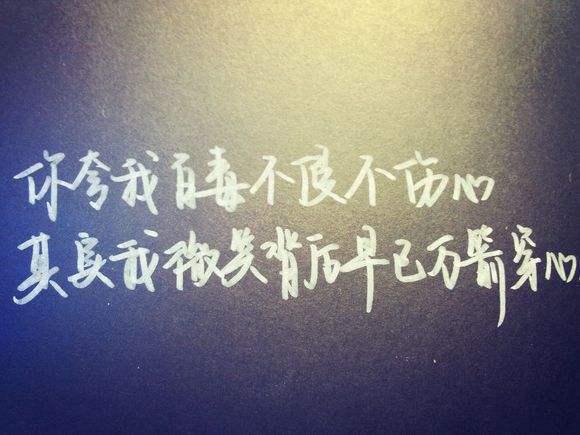 你夸我百毒不侵不伤心
其实我微笑背后早已万箭穿心